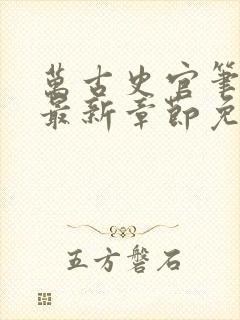 萬古史官筆
最新章節免
五方磐石